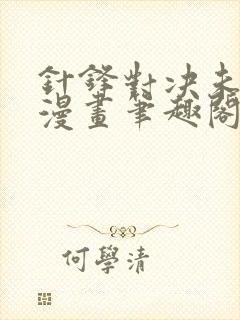 針鋒對決未
漫畫筆趣閣
何學清